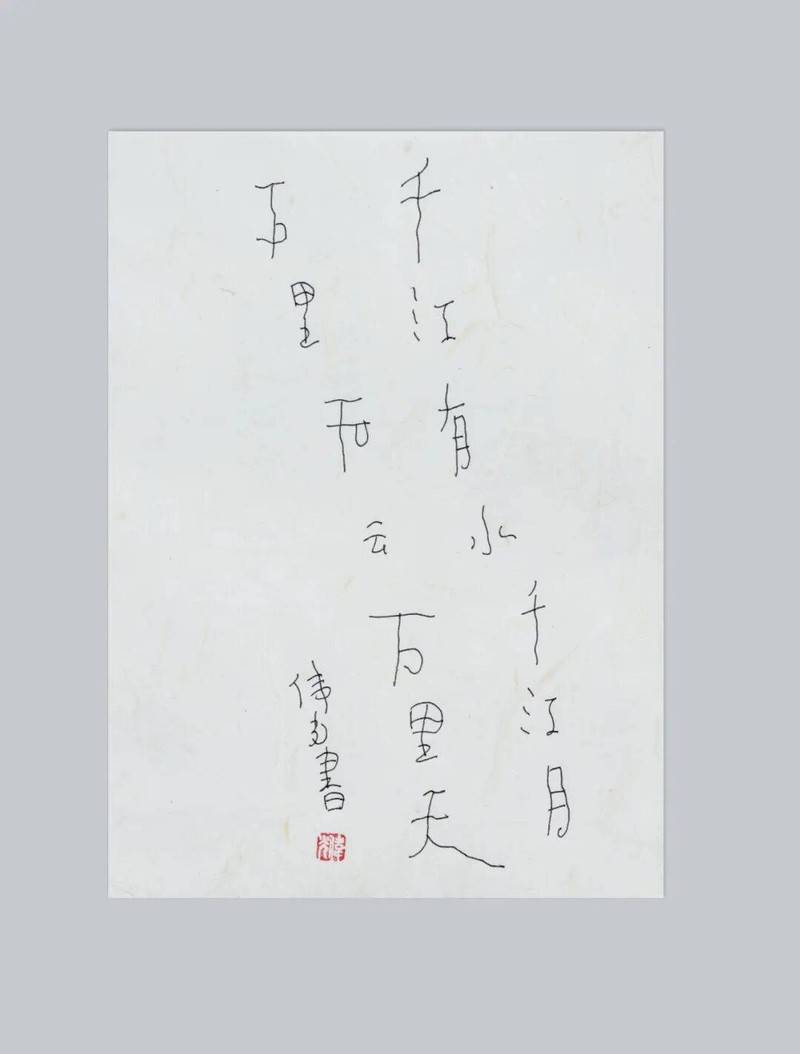 千江有水千江月
万里无云万里天
伟書